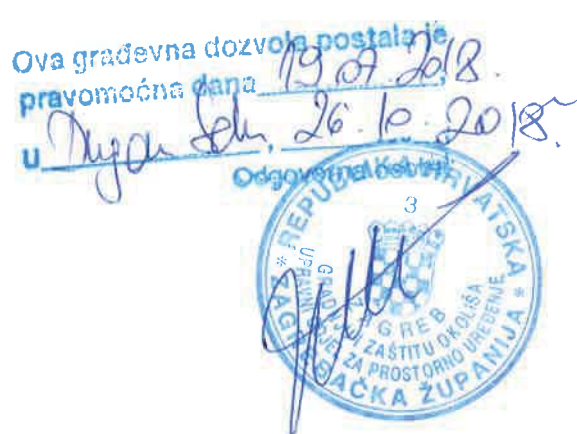 Ova građevna dozvola postala je
pravomoćna dana 19.07.2018.
u Dugom Selu, 26.10.2018.
Odgovorna osoba
REPUBLIKA HRVATSKA
3
ZAGREBAČKA ŽUPANIJA
UPRAVNI ODJEL ZA PROSTORNO UREĐENJE
GRADNJU I ZAŠTITU OKOLIŠA
ZAGREB